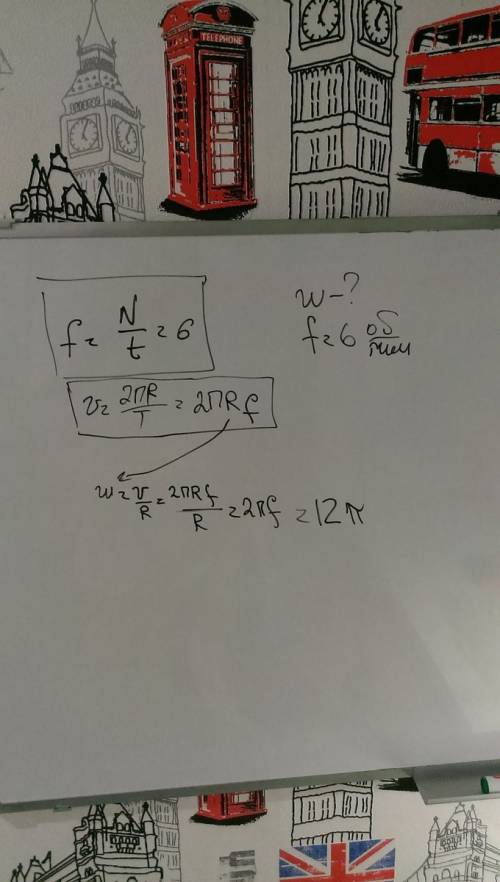 TELEPHONE
f = N/t = 6
w - ?
f = 6 об/мин
v = 2πR/T = 2πRf
w = v/R = 2πRf/R = 2πf = 12π